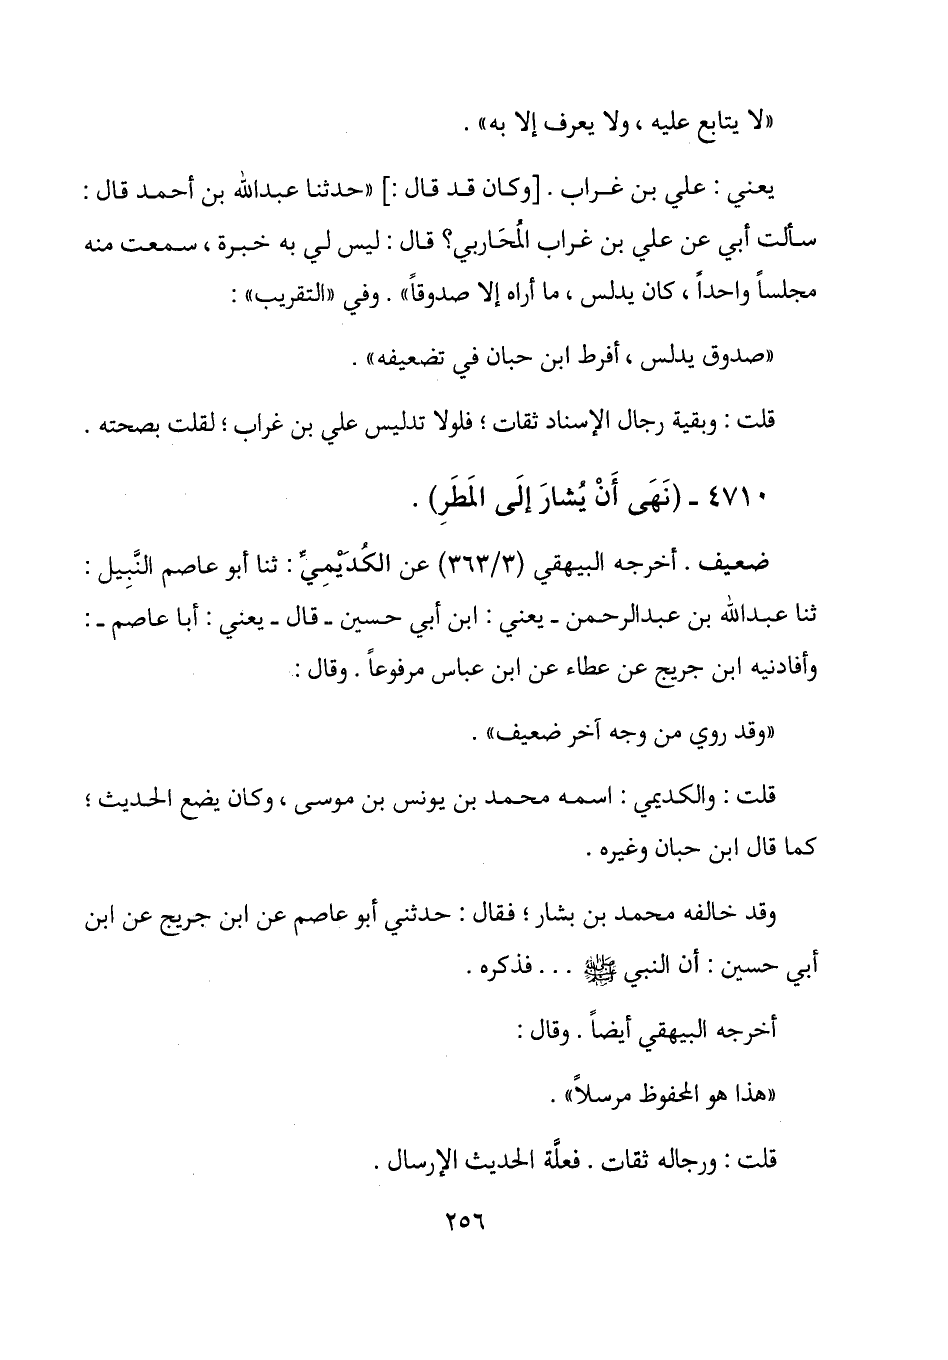 «لا يتابع عليه ، ولا يعرف إلا به» .
يعني : علي بن غراب . [وكان قد قال :] «حدثنا عبدالله بن أحمد قال :
سألت أبي عن علي بن غراب المُحَاربي؟ قال : ليس لي به خبرة ، سمعت منه
مجلساً واحداً ، كان يدلس ، ما أراه إلا صدوقاً» . وفي «التقريب» :
«صدوق يدلس ، أفرط ابن حبان في تضعيفه» .
قلت : وبقية رجال الإسناد ثقات ؛ فلولا تدليس علي بن غراب ؛ لقلت بصحته .
٤٧١٠ ـ (نَهَى أَنْ يُشارَ إلَى المَطَرِ) .
ضعيف . أخرجه البيهقي (٣٦٣/٣) عن الكُدَيْمِيِّ : ثنا أبو عاصم النَّبِيل :
ثنا عبدالله بن عبدالرحمن ـ يعني : ابن أبي حسين ـ قال ـ يعني : أبا عاصم ـ :
وأفادنيه ابن جريج عن عطاء عن ابن عباس مرفوعاً . وقال :
«وقد روي من وجه آخر ضعيف» .
قلت : والكديمي : اسمه محمد بن يونس بن موسى ، وكان يضع الحديث ؛
كما قال ابن حبان وغيره .
وقد خالفه محمد بن بشار ؛ فقال : حدثني أبو عاصم عن ابن جريج عن ابن
أبي حسين : أن النبي ﷺ ... فذكره .
أخرجه البيهقي أيضاً . وقال :
«هذا هو المحفوظ مرسلاً» .
قلت : ورجاله ثقات . فعلَّة الحديث الإرسال .
٢٥٦